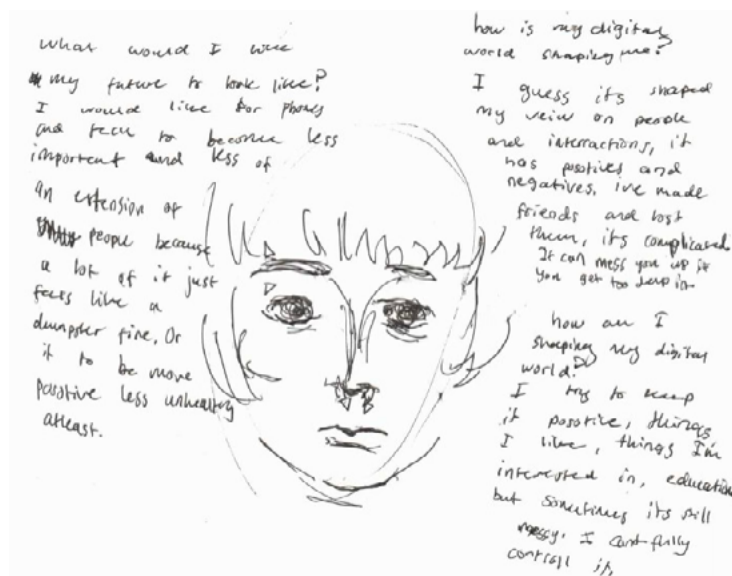 what would I like
my future to look like?
I would like for phones
and tech to become less
important and less of
an extension of
people because
a lot of it just
feels like a
dumpster fire. Or
it to be more
posotive less unhealthy
atleast.
how is my digital
world shaping me?
I guess its shaped
my veiw on people
and interactions, it
has posotives and
negatives. ive made
friends and lost
them, its complicated.
It can mess you up if
you get too deep in
how am I
shaping my digital
world?
I try to keep
it posotive, things
I like, things I'm
interested in, education
but sometimes its still
messy. I cant fully
controll it.